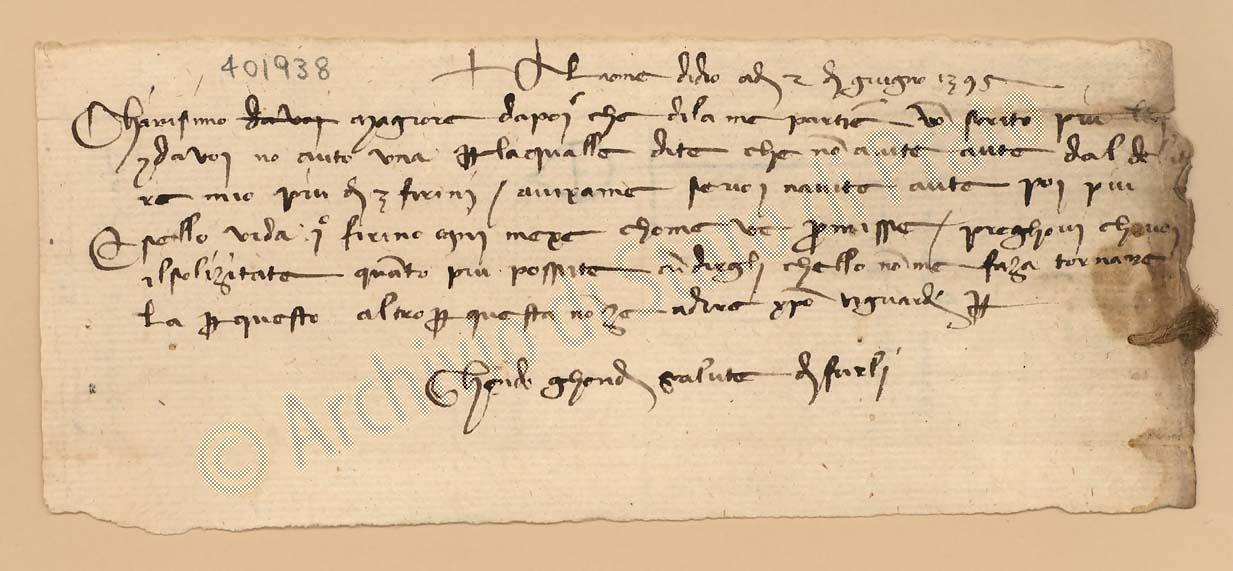 401938
+ Al nome didio adi 2 di giugno 1395
Charisimo da voi magiore dapoi che dila me partie vo scrito piu
e da voi no auto una p laqualle dite che non avite aute dal
re mio piu di 3 firini / avixame se voi navite aute poi piu
E sello vida i firino ogni mexe chome ve promisse / preghovi che voi
il solizitate quanto piu possite cu dirgli chello nonme faza tornare
la p questo altro p questa no ze a dire xpo vi guardi p
ghondi salute di furli
© Archivio di Stato di Prato